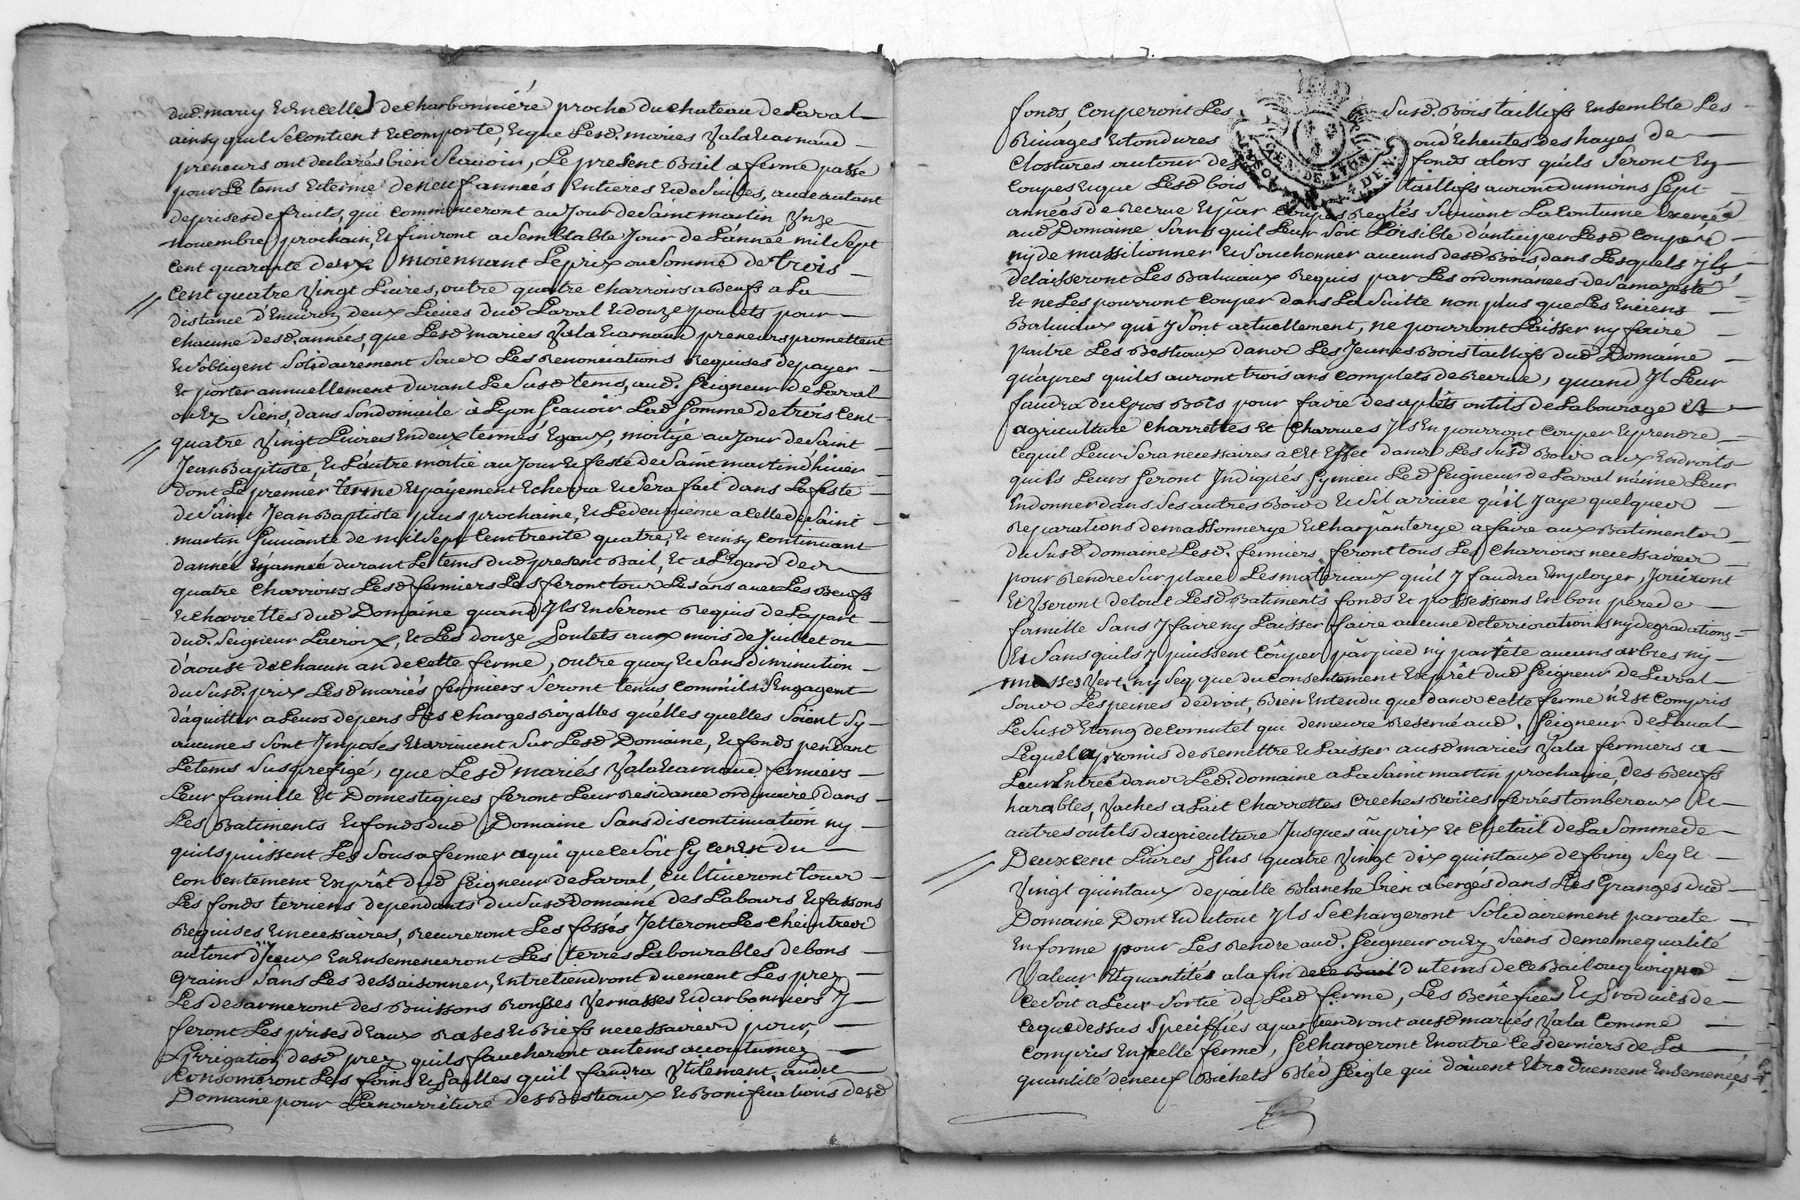 dud. marcy et en celle de charbonniére proche du chateau de Laval
ainsy qu'il se contient et comporte, et que Lesd. maries Yala et arnaud
preneurs ont declarés bien scavoir, Le present Bail a ferme passé
pour Le tems et terme de neuf années Entieres et de suittes, avec autant
de prises de fruits, qui commenceront au Jour de Saint martin Ynze
novembre prochain, et finiront a semblable Jour de L'année mil sept
cent quarante deux moiennant Le prix ou somme de trois
cent quatre Vingt Livres, outre quatre charrois a Beufs a La
distance d'Environ deux Lieues dud. Laval et douze poulets pour
chacune desd. années, que Lesd. maries Yala et arnaud preneurs promettent
et s'obligent solidairement sous Les Renonciations Requises de payer
et porter annuellement durant Le susd. tems, aud. Seigneur de Laval
ou Ez siens, dans son domicile à Lyon scavoir Lad. somme de trois cent
quatre Vingt Livres en deux termes Egaux, moityé au Jour de Saint
Jean Baptiste, et L'autre moitié au Jour et feste de Saint martin d'hiver
dont Le premiér terme et payement Echerra et sera fait dans La feste
de Saint Jean Baptiste plus prochaine, et Le deuxieme a celle de Saint
martin suivante de mil sept cent trente quatre, et ainsy continuant
d'année en année durant Le tems dud. present Bail, et a L'egard des
quatre charrois Lesd. fermiers Les feront tous Les ans avec Les Beufs
et charrettes dud. Domaine quand Ils En seront Requis de La part
dud. Seigneur Lacroix, et Les douze poulets aux mois de Juillet ou
d'aoust de chacun an de cette ferme, outre quoy et sans diminution
du susd. prix Lesd. mariés fermiers seront tenus comm'ils s'Engagent
d'aquitter a Leurs depens Les charges Royalles qu'elles quelles soient sy
aucunes sont Imposés et arrivent sur Lesd. Domaine, et fonds pendant
Le tems susprefigé, que Lesd. mariés Yala et arnaud fermiers
Leur famille et Domestiques feront Leur Residance ordinaire dans
Les Batiments et fonds dud. Domaine sans discontinuation ny
qu'ils puissent Les sous afermer a qui que ce soit sy ce n'est du
consentement Exprêt dud. Seigneur de Laval, cultiveront tous
Les fonds terriens dependants du susd. domaine des Labours et fassons
Requises et necessaires, Recureront Les fossés Jetteront Les cheintres
autour d'Iceux En Ensemenceront Les terres Labourables de bons
grains sans Les dessaisonner, Entretiendront duement Les prez
Les desarmeront des Buissons Ronsses Vernasses et darbonniers Y
feront Les prises d'Eaux Rases et Biefs necessaires pour
L'irrigation desd. prez, qu'ils faucheront au tems accoutumez
consomeront Les foins et pailles qu'il faudra Utilement audit
Domaine pour La nourriture des Bestiaux et Bonifications desd.
fonds, couperont Les susd. Bois taillifs Ensemble Les
Rivages et tondures ou d'Echeutes des hayes de
Clostures autour des fonds alors qu'ils seront En
coupes et que Lesd. bois taillifs auront du moins sept
années de Recrue et par coupes Reglés suivant La coutume Exercée
aud. Domaine sans qu'il Leur soit Loisible d'anticiper Lesd. coupes
ny de massilionner et souchonner aucuns desd. Bois dans Lesquels Ils
delaisseront Les Balivaux Requis par Les ordonnances de sa majesté
Et ne Les pourront couper dans La suitte non plus que Les Enciens
Balivaux qui y sont actuellement, ne pourront Laisser ny faire
paitre Les Bestiaux dans Les Jeunes Bois taillifs dud. Domaine
qu'apres qu'ils auront trois ans complets de Recrue, quand Il Leur
faudra du Gros Bois pour faire des aplêts outils de Labourage et
agriculture charrettes et charrues Ils En pourront couper et prendre
ce qui Leur sera necessaires a cet Effet dans Les susd. Bois aux Endroits
qu'ils Leurs seront Indiqués sy mieux Led. Seigneur de Laval n'aime Leur
En donner dans ses autres Bois et s'il arrivee qu'il J aye quelques
Reparations de massonnerye et charpanterye a faire aux Batiments
du susd. domaine Lesd. fermiers feront tous Les charrois necessaires
pour Rendre sur place Les materiaux qu'il y faudra Employer, Joüiront
Et Useront de tout Lesd. Batiments fonds et possessions En bon pere de
famille sans y faire ny Laisser faire aucune deterrioration ny degradations
Et sans qu'ils y puissent coûper par pied ny par tête aucuns arbres ny
mosses Vert, ny seq que du consentement Exprêt dud. Seigneur de Laval
sous Les peines de droit, Bien Entendu que dans cette ferme n'Est compris
Le susd. Etang de cornutel qui demeure Reservé aud. Seigneur de Laval
Lequel a promis de Remettre et Laisser ausd. mariés Yala fermiers a
Leur Entrée dans Led. domaine a La saint martin prochaine, des Beufs
harables, Vaches a Lait charrettes creches Roües ferrés tomberaux et
autres outils d'agriculture Jusques au prix et chetail de La somme de
Deux cent Livres plus quatre Vingt dix quintaux de foing seq et
Vingt quintaux de paille Blanche Bien abergés dans Les Granges dud.
Domaine Dont Et du tout Ils se chargeront solidairement par acte
En forme pour Les Rendre aud. Seigneur ou Ez siens de meme qualité
Valeur et quantités a la fin de ce Bail du tems de ce Bail ou quoique
ce soit a Leur sortie de Lad. ferme, Les Benéfices et Produits de
ce que dessus spéciffiés apartiendront ausd. mariés Yala comme
compris En icelle ferme, se chargeront En outre ces derniers de La
quantité de neuf Bichets Bléd seigle qui doivent Etre duement Ensemencés
GEN. DE LYON